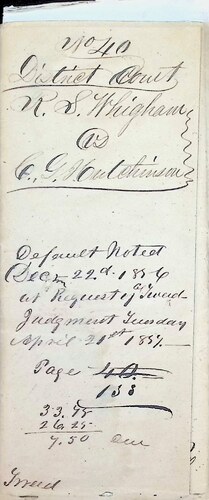 No 40
District Court
R. S. Whigham
vs
C. G. Hutchinson
Default Noted
Decm 22d. 1856
at Request of Tweed
Judgment Tuesday
April 21st 1857
Page 40.
138
33.75
26.25
7.50 due
Tweed